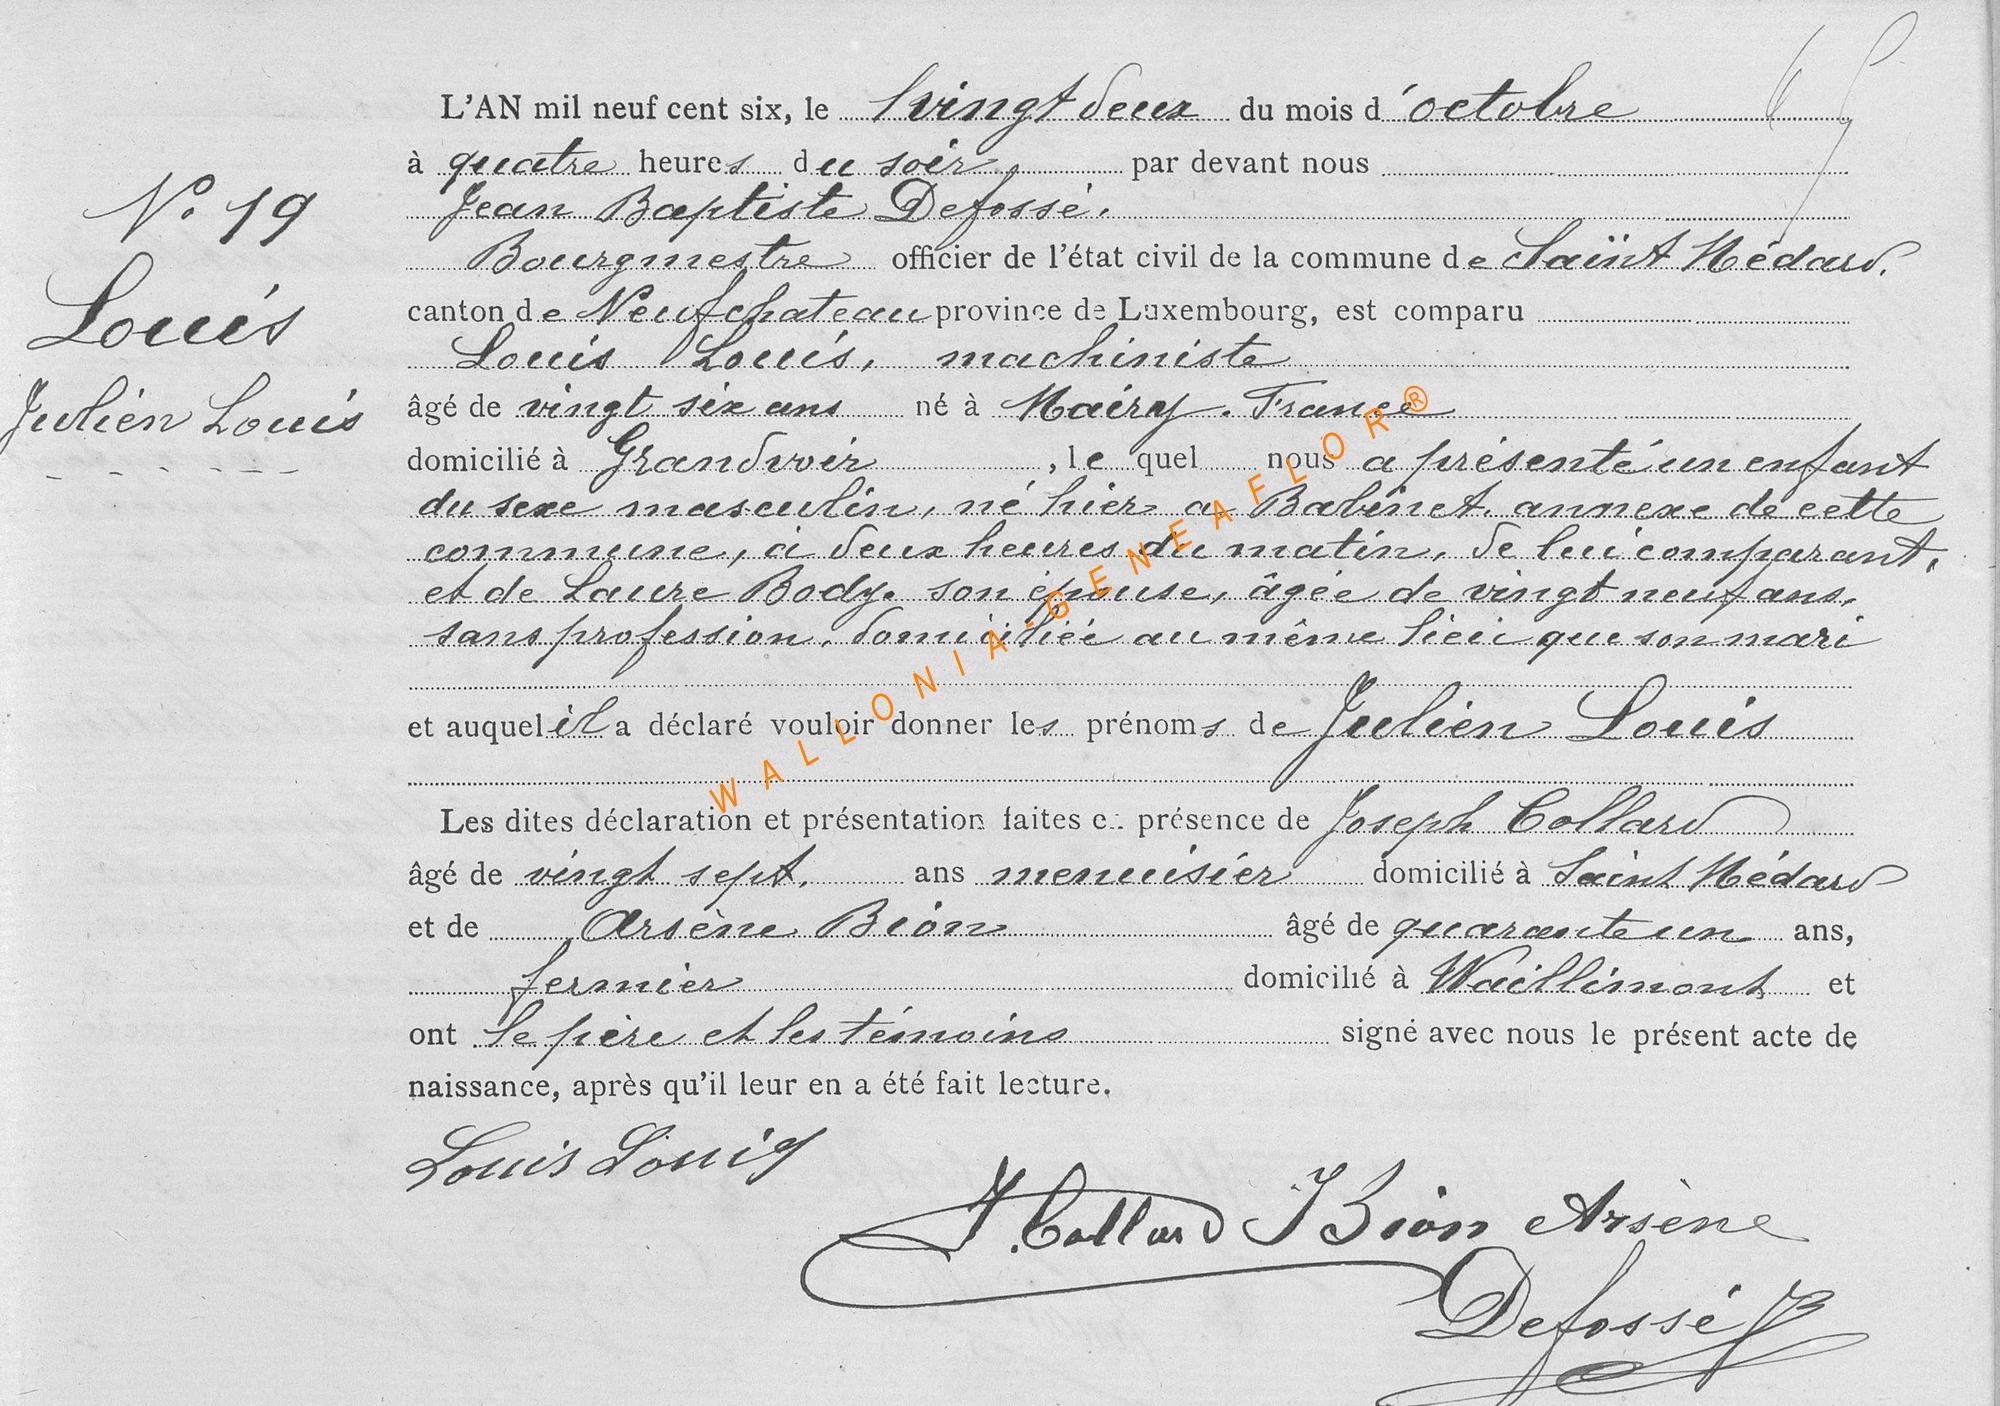 L'AN mil neuf cent six, le vingt deux du mois d'octobre
à quatre heures du soir, par devant nous
Jean Baptiste Defossé.
Bourgmestre officier de l'état civil de la commune de Saint Médard.
canton de Neufchateau province de Luxembourg, est comparu
Louis Louis, machiniste
âgé de vingt six ans né à Mairy. France
domicilié à Grandvoir, le quel nous a présenté un enfant
du sexe masculin, né hier a Babinet. annexe de cette
commune, à deux heures du matin, de lui comparant,
et de Laure Body. son épouse, âgée de vingt neuf ans,
sans profession, domiciliée au même lieu que son mari
et auquel il a déclaré vouloir donner les prénoms de Julien Louis
Les dites déclaration et présentation faites en présence de Joseph Collard
âgé de vingt sept, ans menuisier domicilié à Saint Médard
et de Arsène Bion âgé de quarante un ans,
fermier domicilié à Waillimont et
ont le père et les témoins signé avec nous le présent acte de
naissance, après qu'il leur en a été fait lecture.
Louis Louis
J. Collard Bion Arsène
Defossé JB
N° 19
Louis
Julien Louis
WALLONIA-GENEAFLOR®